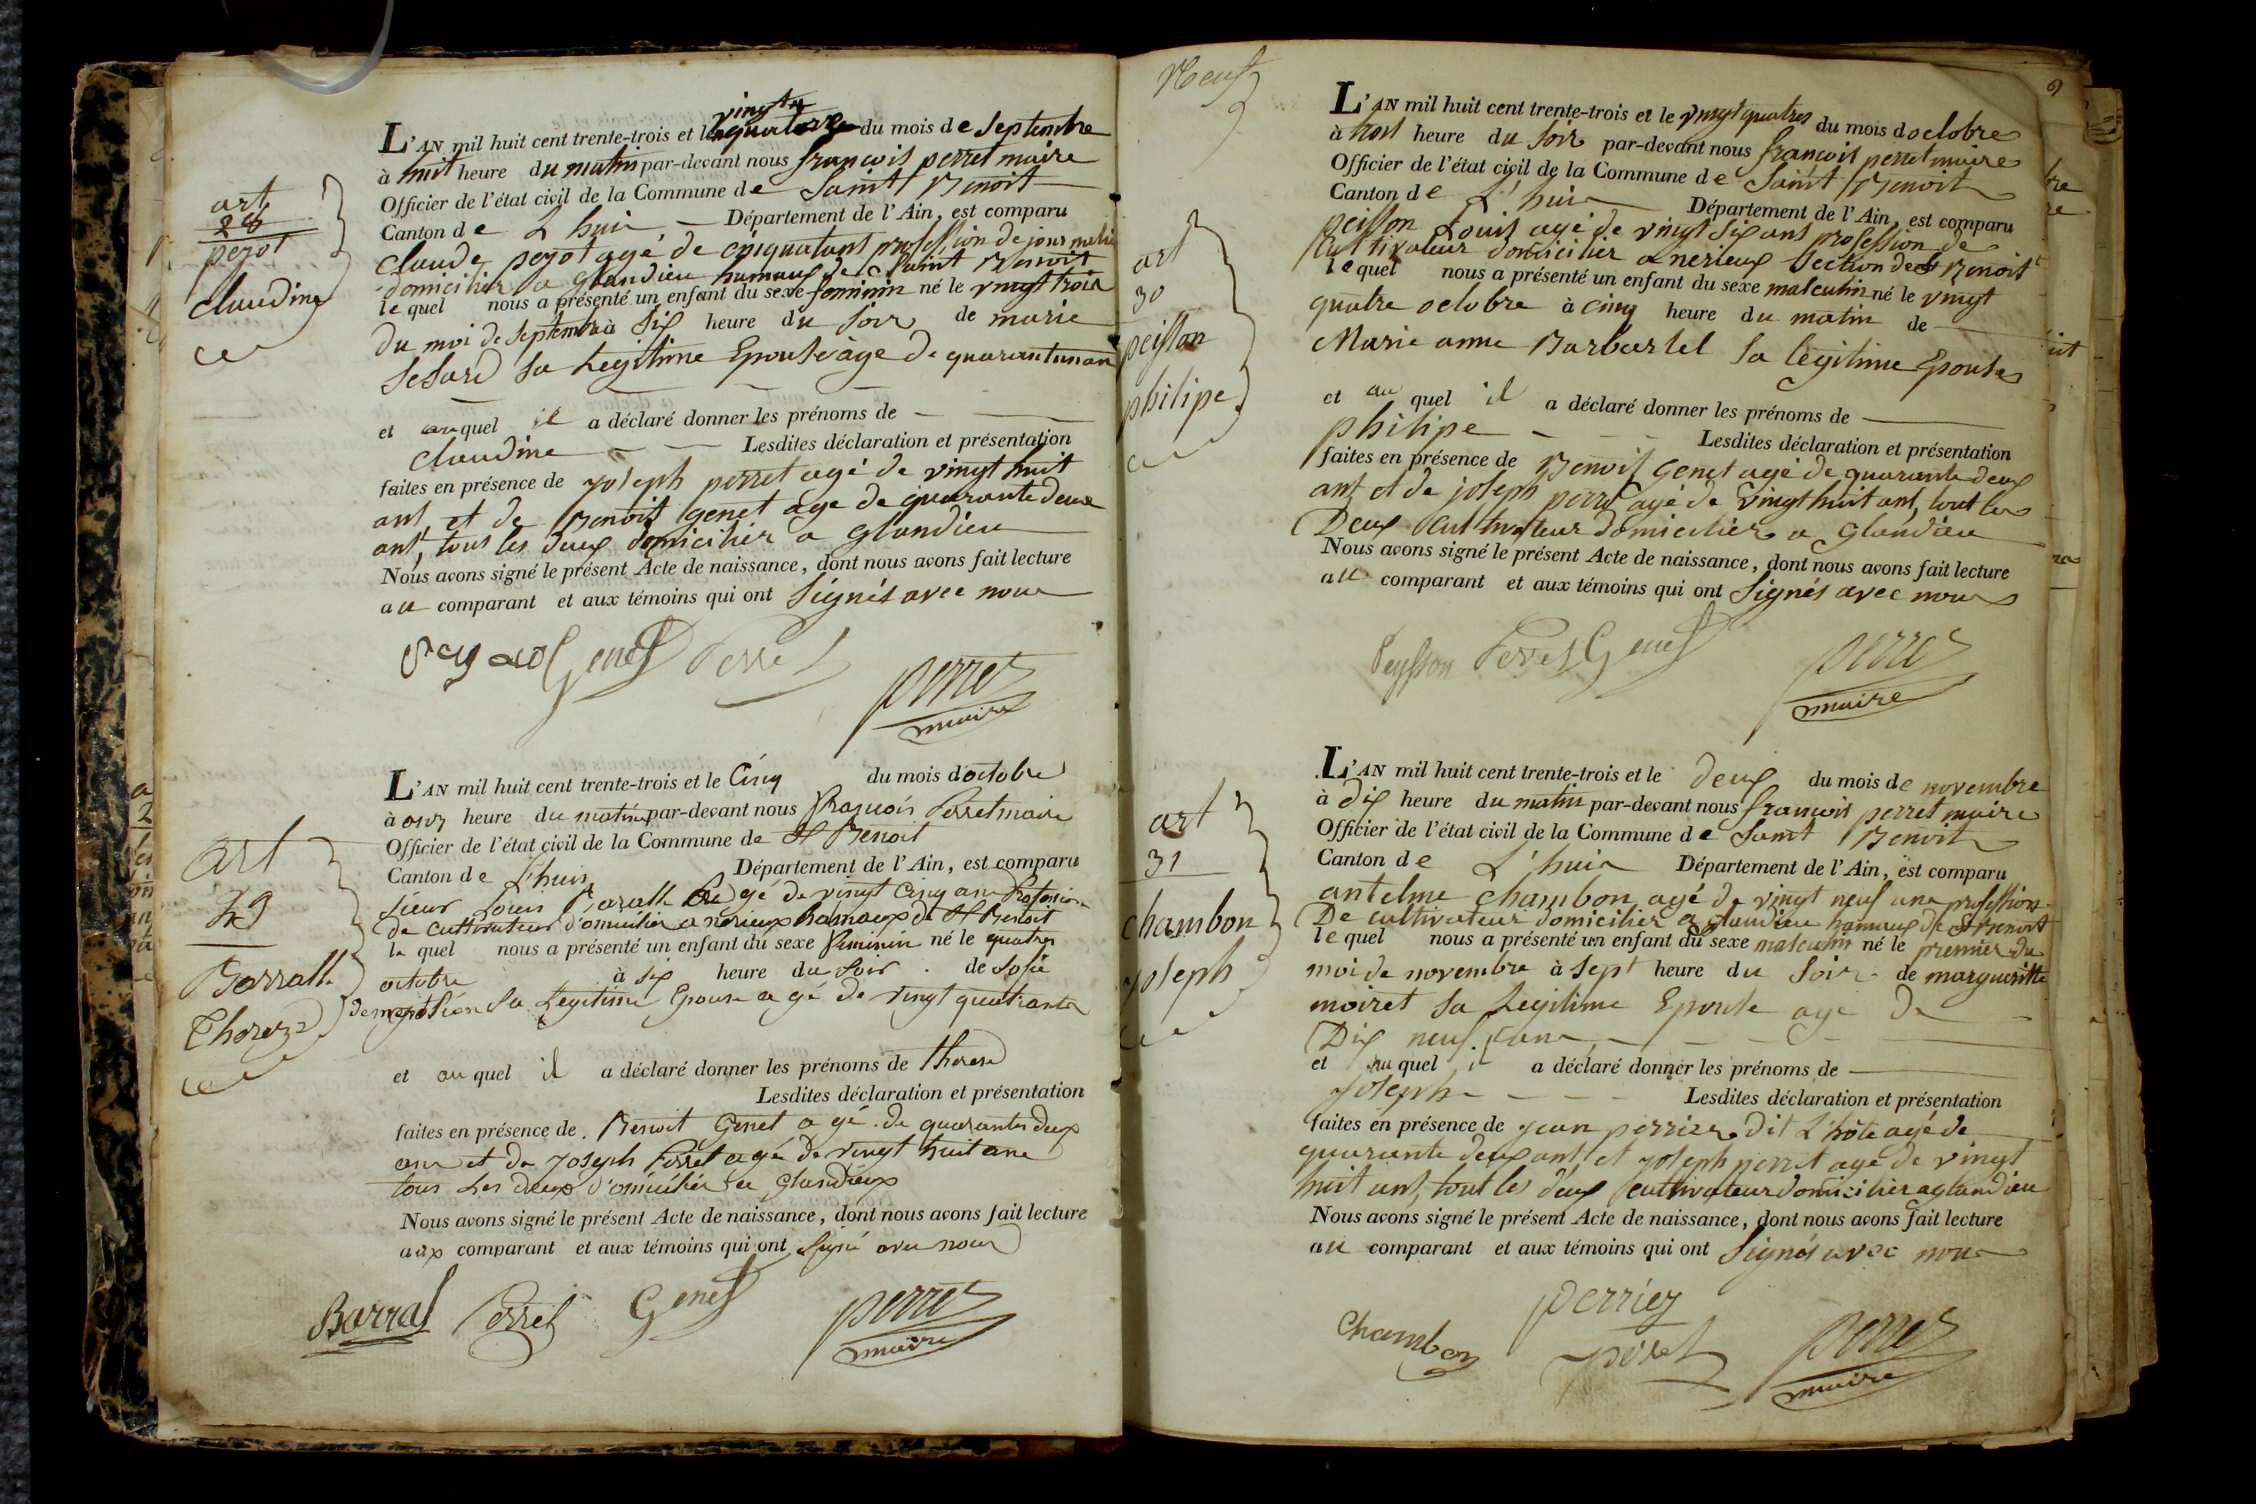 art
28
pezot
claudine
L'AN mil huit cent trente-trois et le vingt quatre du mois de septembre
à huit heure du matin par-devant nous francois perret maire
Officier de l'état civil de la Commune de Saint Benoit
Canton de L'huis Département de l'Ain, est comparu
claude pezot agé de cinquatant profession de journalie
domicilier a glandieu hamaux de Saint Benoit
lequel nous a présenté un enfant du sexe feminin né le vingt trois
du moi de septembre à six heure du soir de marie
sa Legitime Epouse âge de quarantunan
et auquel il a déclaré donner les prénoms de
claudine Lesdites déclaration et présentation
faites en présence de joseph perret agé de vingt huit
ant, et de Benoit genet age de quarante deux
ant, tous les deux domicilier a glandieu
Nous avons signé le présent Acte de naissance, dont nous avons fait lecture
au comparant et aux témoins qui ont signés avec nous
Genet Perret
perret
maire
art
29
Barralle
Therese
L'AN mil huit cent trente-trois et le cinq du mois d'octobre
à onz heure du matin par-devant nous François Perret maire
Officier de l'état civil de la Commune de St Benoit
Canton de L'huis Département de l'Ain, est comparu
sieur Louis Baralle agé de vingt cinq ans Profession
de cultivateur domicilier a nerieux hamaux de St Benoit
lequel nous a présenté un enfant du sexe feminin né le quatre
octobre à six heure du soir de sofie
sa Legitime Epouse agé de vingt quatrants
et auquel il a déclaré donner les prénoms de therese
Lesdites déclaration et présentation
faites en présence de Benoit Genet agé de quarantes deux
ans et de Joseph Perret agé de vingt huit ans
tous Les deux domicilier a glandieux
Nous avons signé le présent Acte de naissance, dont nous avons fait lecture
aux comparant et aux témoins qui ont signé avec nous
Barral Perret Genet
perret
maire
Neuf
9
art
30
peisson
philipe
L'AN mil huit cent trente-trois et le vingt quatres du mois doctobre
à heure du soir par-devant nous francois perret maire
Officier de l'état civil de la Commune de Saint Benoit
Canton de L'huis Département de l'Ain, est comparu
peisson Louis agé de vingt six ans profession de
cultivateur domicilier a nerieux section de st Benoit
lequel nous a présenté un enfant du sexe masculin né le vingt
quatre octobre à cinq heure du matin de
Marie anne Barbartel sa legitime Epouse
et auquel il a déclaré donner les prénoms de
philipe Lesdites déclaration et présentation
faites en présence de Benoit Genet agé de quarante deux
ant et de joseph perret agé de vingt huit ant, tout les
Deux cultivateur domicilier a glandieu
Nous avons signé le présent Acte de naissance, dont nous avons fait lecture
au comparant et aux témoins qui ont signés avec nous
Peysson Perret Genet
perret
maire
art
31
chambon
joseph
L'AN mil huit cent trente-trois et le deux du mois de novembre
à dix heure du matin par-devant nous francois perret maire
Officier de l'état civil de la Commune de Saint Benoit
Canton de L'huis Département de l'Ain, est comparu
antelme chambon agé de vingt neuf ans profession
De cultivateur domicilier a glandieu hamaux de St Benoit
lequel nous a présenté un enfant du sexe masculin né le premier du
moi de novembre à sept heure du soir de margueritte
moiret sa Legitime Epouse agé de
Dix neuf ans
et auquel il a déclaré donner les prénoms de
joseph Lesdites déclaration et présentation
faites en présence de jean perrier dit L'hôte agé de
quarante deux ant et joseph perret agé de vingt
huit ant, tout les deux cultivateur domicilier a glandieu
Nous avons signé le présent Acte de naissance, dont nous avons fait lecture
au comparant et aux témoins qui ont signés avec nous
Chambon
perrier
perret
maire